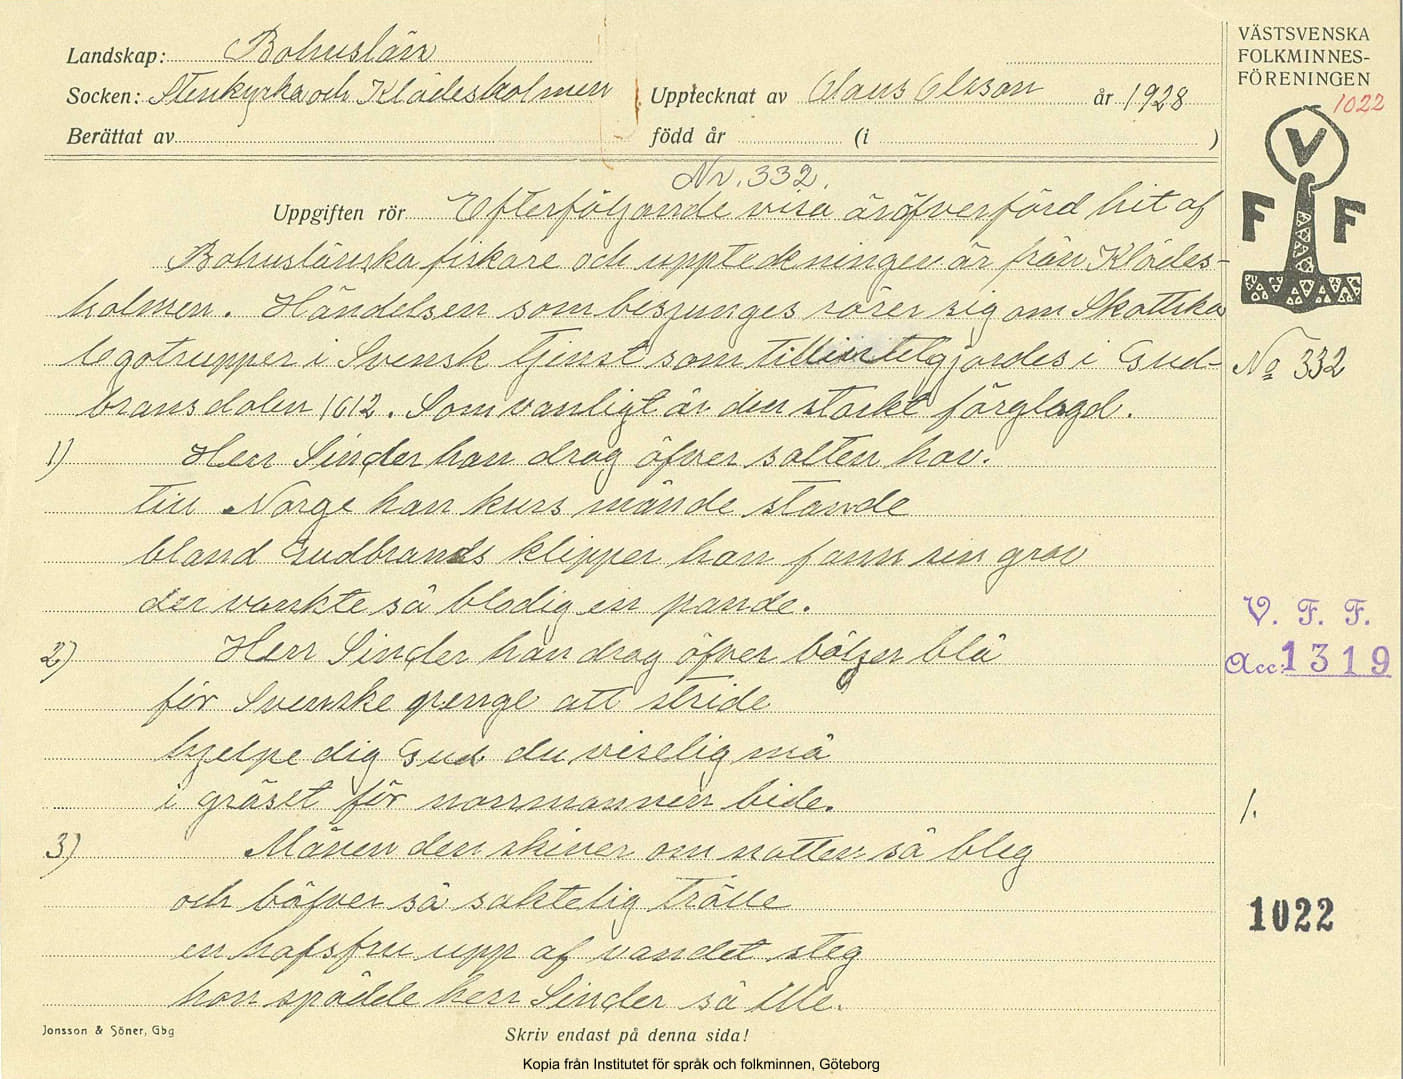 Landskap: Bohuslän
VÄSTSVENSKA
FOLKMINNES-
FÖRENINGEN
Socken: Stenkyrka och Klädesholmen Upptecknat av Claus Olsson år 1928
1022
Berättat av född år (i )
V
F F
Nr. 332.
Uppgiften rör Efterföljande visa är öfverförd hit af
Bohuslänska fiskare och uppteckningen är från Klädes-
holmen. Händelsen som besjunges rörer sig om Skottska
legotrupper i Svensk tjenst som tillintetgjordes i Gud-
No 332
bransdalen 1612. Som vanligt är den starkt färglagd.
1) Herr Sincler han drog öfver salten hav.
till Norge han kurs månde stande
bland Gudbrands klipper han fann sin grav
der vankte så blodig en pande.
2) Herr Sincler han drog öfver böljen blå
för Svenske penge att stride
hjelpe dig Gud du viselig må
i gräset för norrmannen bide.
3) Månen den skiner om natten så bleg
och bölver så saktelig trälle
en hafsfru upp af vandet steg
hon spådde herr Sincler så ille.
V. F. F.
Acc. 1319
1.
1022
Jonsson & Söner, Gbg
Skriv endast på denna sida!
Kopia från Institutet för språk och folkminnen, Göteborg